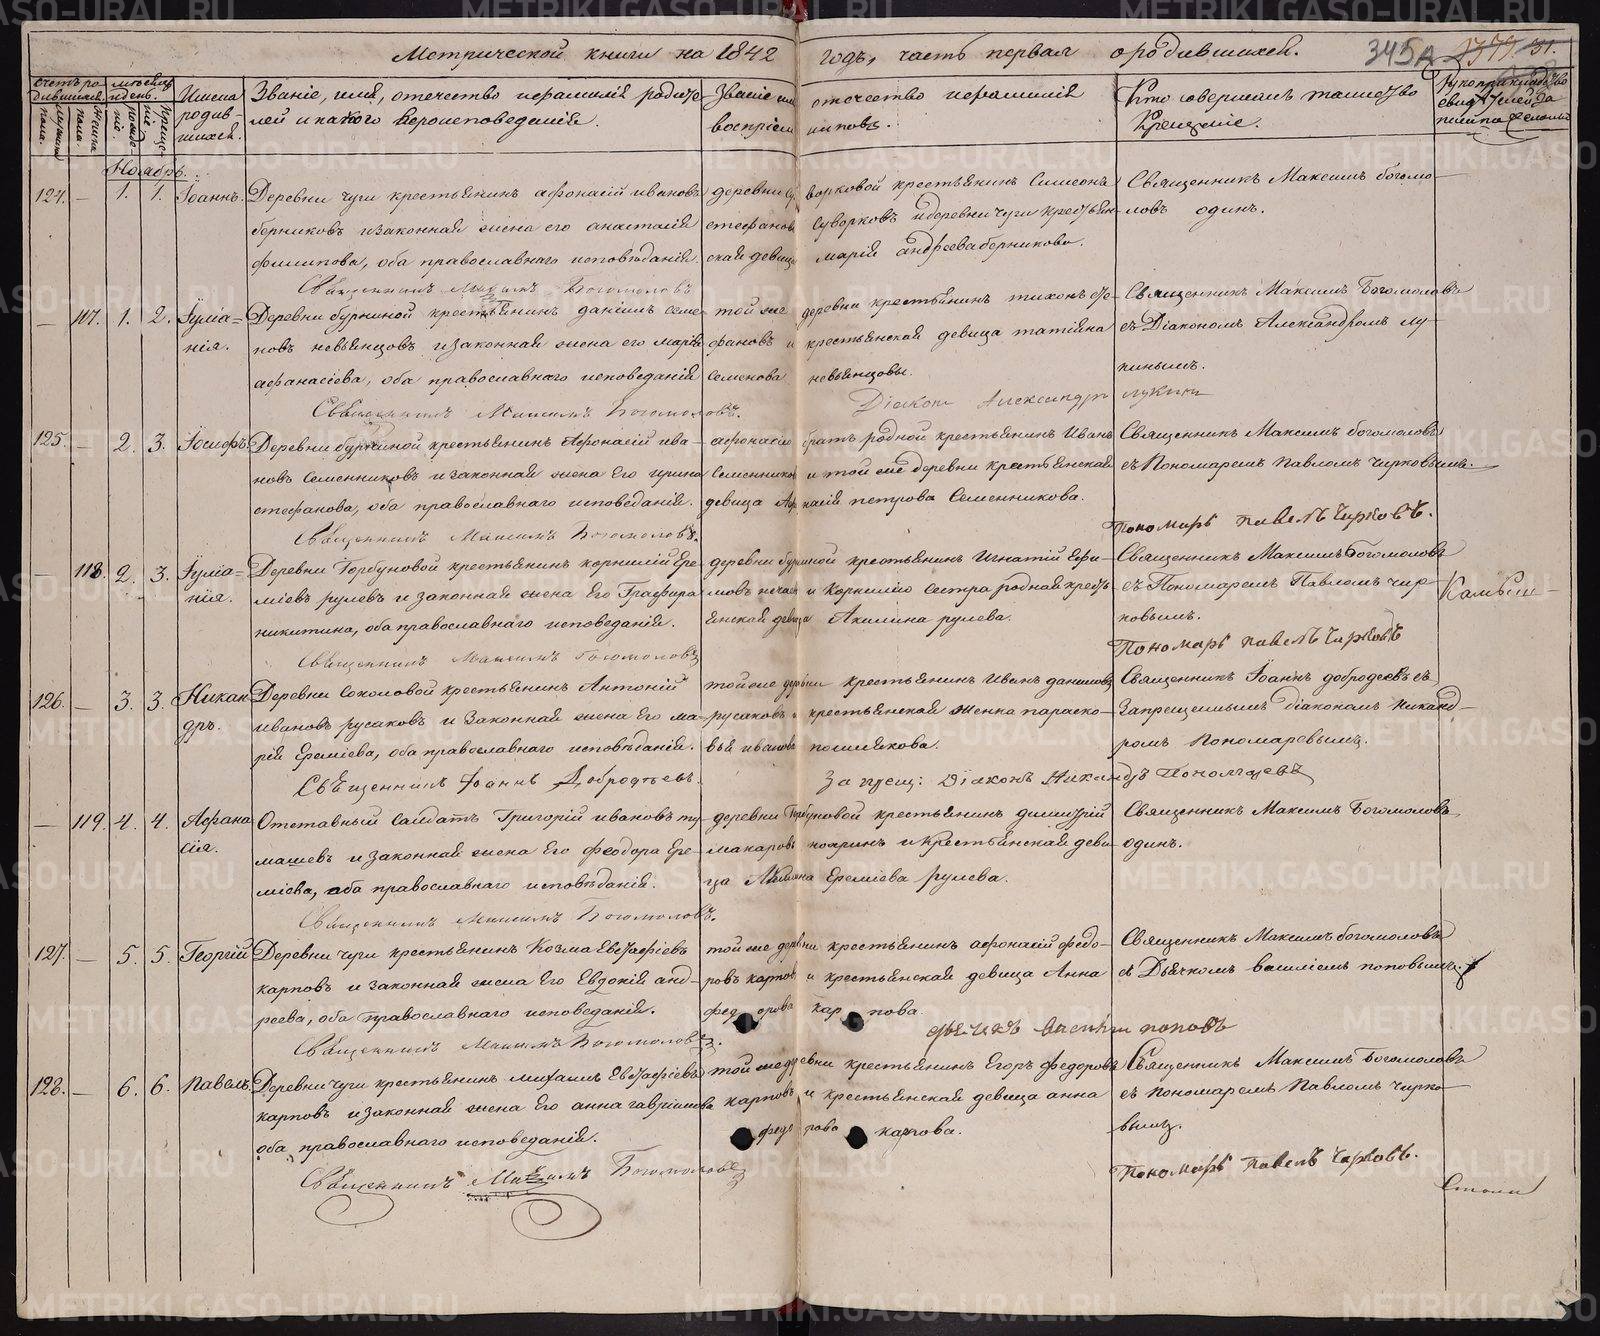 Метрической книги на 1842 годъ, часть первая о родившихся. 345А
Счетъ ро-
дившихся.
мужеска
пола.
женска
пола.
мѣсяцъ
и день.
рожде-
нія.
креще-
нія.
Имена
родив-
шихся.
Званіе, имя, отечество и фамилія родите-
лей и какого вероисповеданія.
Званіе имя отечество и фамилія
воспріемниковъ.
Кто совершалъ таинство
Крещеніе.
Ноябрь.
124. — 1. 1. Іоаннъ.
Деревни чуги крестьянинъ афонасій ивановъ
берниковъ и законная жена его анастасія
филипова, оба православнаго исповѣданія.
Священникъ Максимъ Богомоловъ
деревни Суворковой крестьянинъ Симеонъ
стефановъ Суворковъ и деревни чуги крестьян-
ская девица марія андреева берникова.
Священникъ Максимъ богомо-
ловъ одинъ.
— 117. 1. 2. Іуліа-
нія.
Деревни бурниной крестьянинъ даніилъ семе-
новъ невьянцовъ и законная жена его марія
афанасіева, оба православнаго исповеданія
Священникъ Максимъ Богомоловъ.
той же деревни крестьянинъ тихонъ сте-
фановъ и крестьянская девица татіяна
семенова невьянцовы.
Священникъ Максимъ Богомоловъ
съ Діакономъ Александромъ лу-
кинымъ.
Діаконъ Александръ лукинъ
125. — 2. 3. Іосифъ.
Деревни бурниной крестьянинъ Афонасій ива-
новъ Семенниковъ и законная жена Его ирина
стефанова, оба православнаго исповеданія.
Священникъ Максимъ Богомоловъ.
афонасію братъ родной крестьянинъ Иванъ
Семенниковъ и той же деревни крестьянская
девица петрова Семенникова.
Священникъ Максимъ богомоловъ
съ Пономаремъ Павломъ Чирковымъ.
Пономарь павелъ Чирковъ.
— 118. 2. 3. Іуліа-
нія.
Деревни Горбуновой крестьянинъ корнилій Ере-
міевъ рулевъ и законная жена Его Глафира
никитина, оба православнаго исповеданія.
Священникъ Максимъ Богомоловъ
деревни бурниной крестьянинъ Игнатій Ефи-
мовъ и Корнилію сестра родная кресть-
янская девица Акилина рулева.
Священникъ Максимъ Богомоловъ
съ Пономаремъ Павломъ чир-
ковымъ.
Пономарь павелъ Чирковъ
126. — 3. 3. Никан-
дръ.
Деревни Соколовой крестьянинъ Антоній
ивановъ русаковъ и законная жена Его ма-
рія Ереміева, оба православнаго исповѣданія.
Священникъ Іоаннъ Добродѣевъ.
той же деревни крестьянинъ Иванъ даниловъ
русаковъ и крестьянская женка параско-
вья иванова
Священникъ Іоаннъ добродеевъ съ
Запрещеннымъ діакономъ Никанд-
ромъ Пономаревымъ.
Запрещ: Діаконъ Никандръ Пономаревъ
— 119. 4. 4. Афана-
сія.
Отставный Салдатъ Григорій ивановъ ту-
машевъ и законная жена Его феодора Ере-
міева, оба православнаго исповѣданія.
Священникъ Максимъ Богомоловъ.
деревни Горбуновой крестьянинъ димитрій
макаровъ и Крестьянская деви-
ца Ереміева рулева.
Священникъ Максимъ Богомоловъ
одинъ.
127. — 5. 5. Георгій
Деревни чуги крестьянинъ Козма Евстафіевъ
карповъ и законная жена Его Евдокія анд-
реева, оба православнаго исповеданія.
Священникъ Максимъ Богомоловъ.
той же деревни крестьянинъ афонасій федо-
ровъ карповъ и крестьянская девица Анна
федорова карпова.
Священникъ Максимъ богомоловъ
съ Дьячкомъ василіемъ поповымъ.
дьячекъ василій поповъ
128. — 6. 6. Павелъ.
Деревни чуги крестьянинъ михаилъ Евстафіевъ
карповъ и законная жена Его анна гавріилова
оба православнаго исповеданія.
Священникъ Максимъ Богомоловъ
той же деревни крестьянинъ Егоръ Федоровъ
карповъ и крестьянская девица анна
федорова карпова.
Священникъ Максимъ Богомоловъ
съ пономаремъ Павломъ Чирко-
вымъ.
Пономарь Павелъ Чирковъ.
METRIKI.GASO-URAL.RU